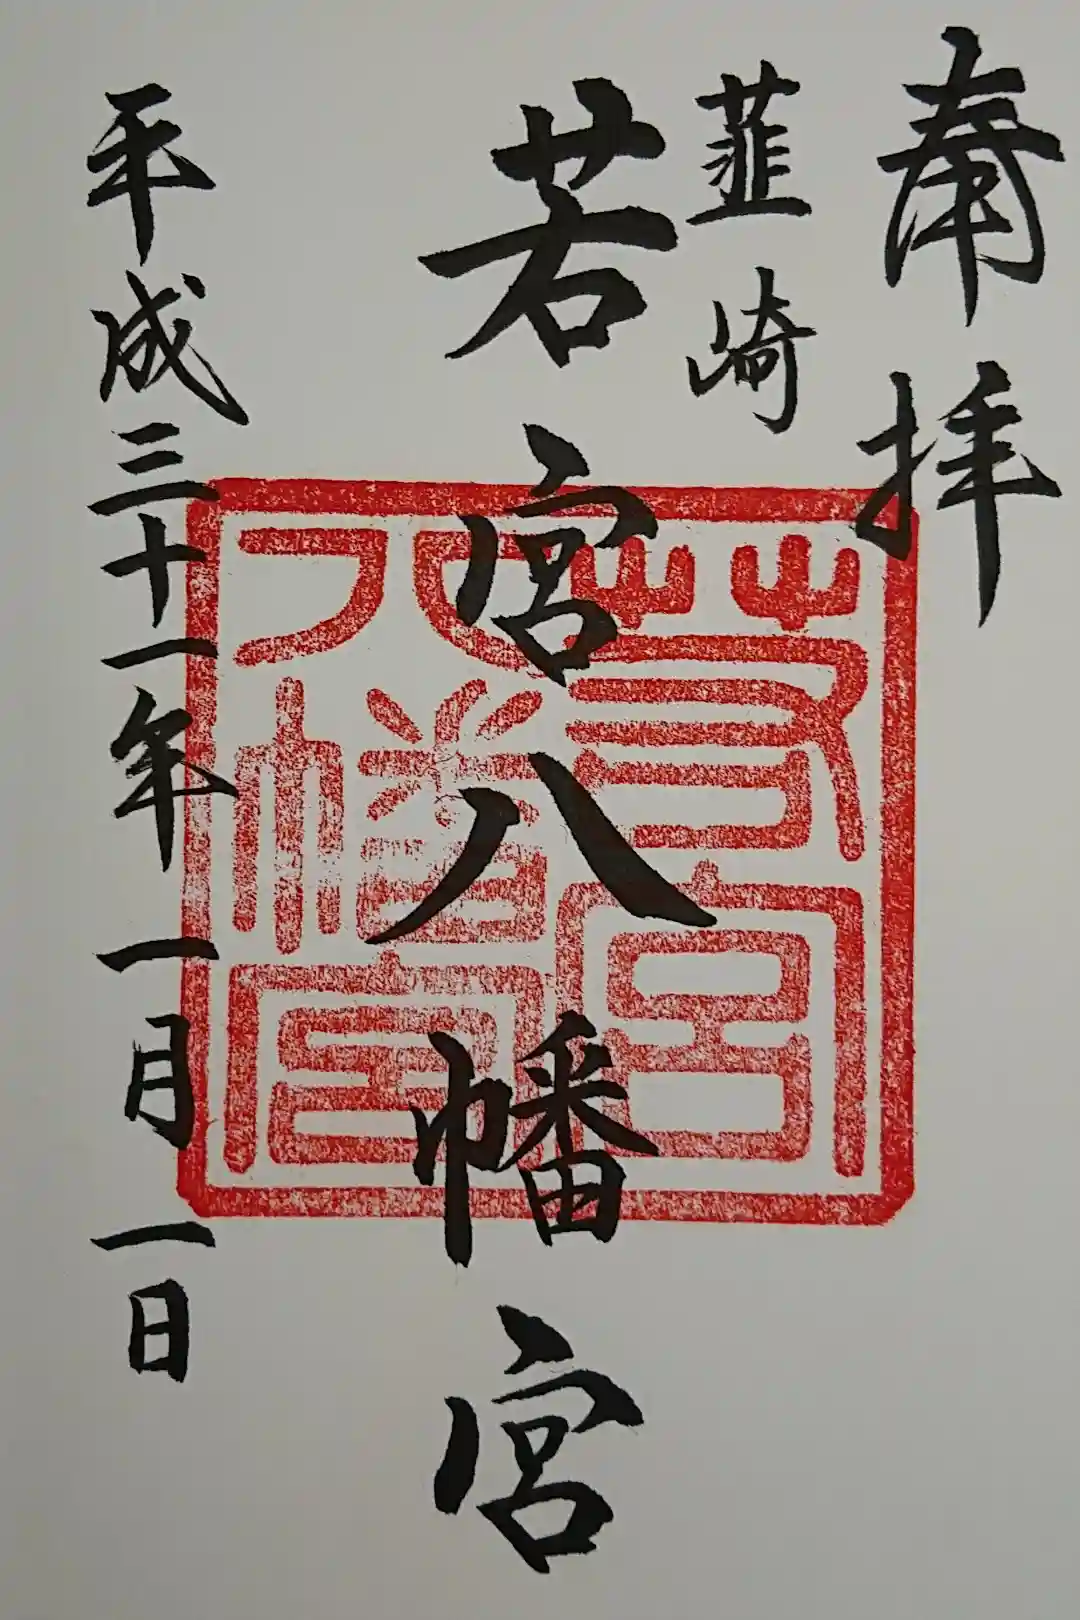 奉拝
韮崎
若宮八幡宮
若宮
八幡宮
平成三十一年一月一日